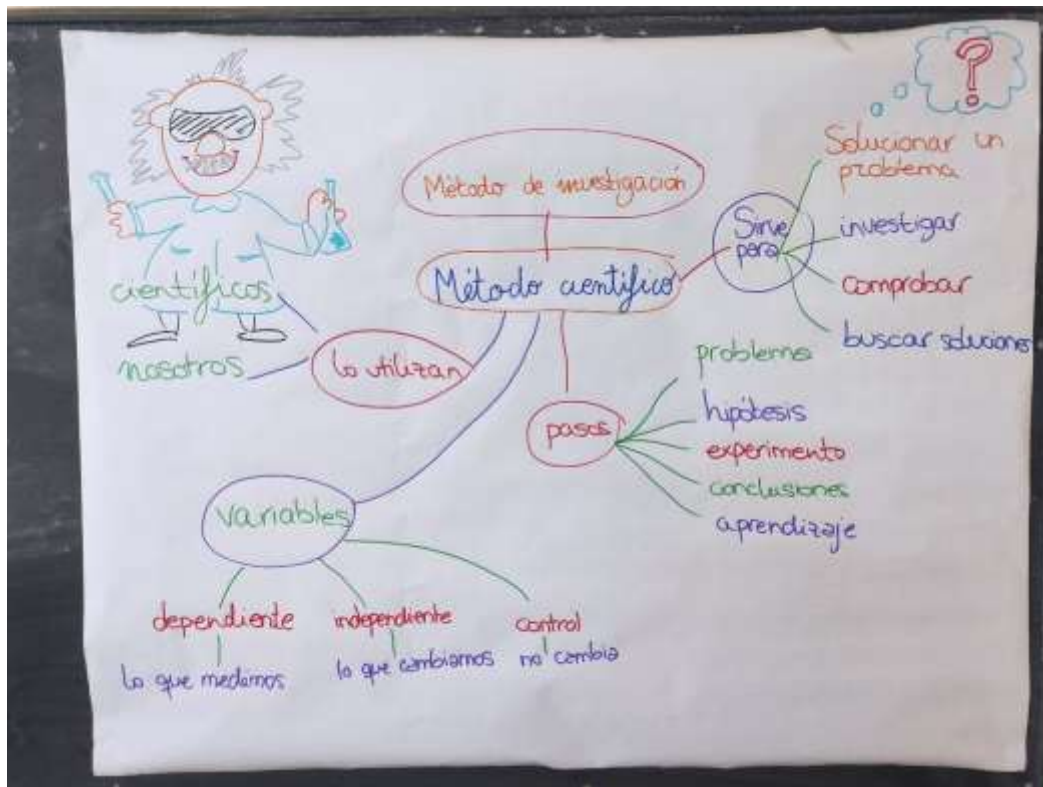 ?
Método de investigación
Método científico
Sirve
para
Solucionar un
problema
investigar
comprobar
buscar soluciones
científicos
nosotros
lo utilizan
pasos
problema
hipótesis
experimento
conclusiones
aprendizaje
variables
dependiente
lo que medimos
independiente
lo que cambiamos
control
no cambia